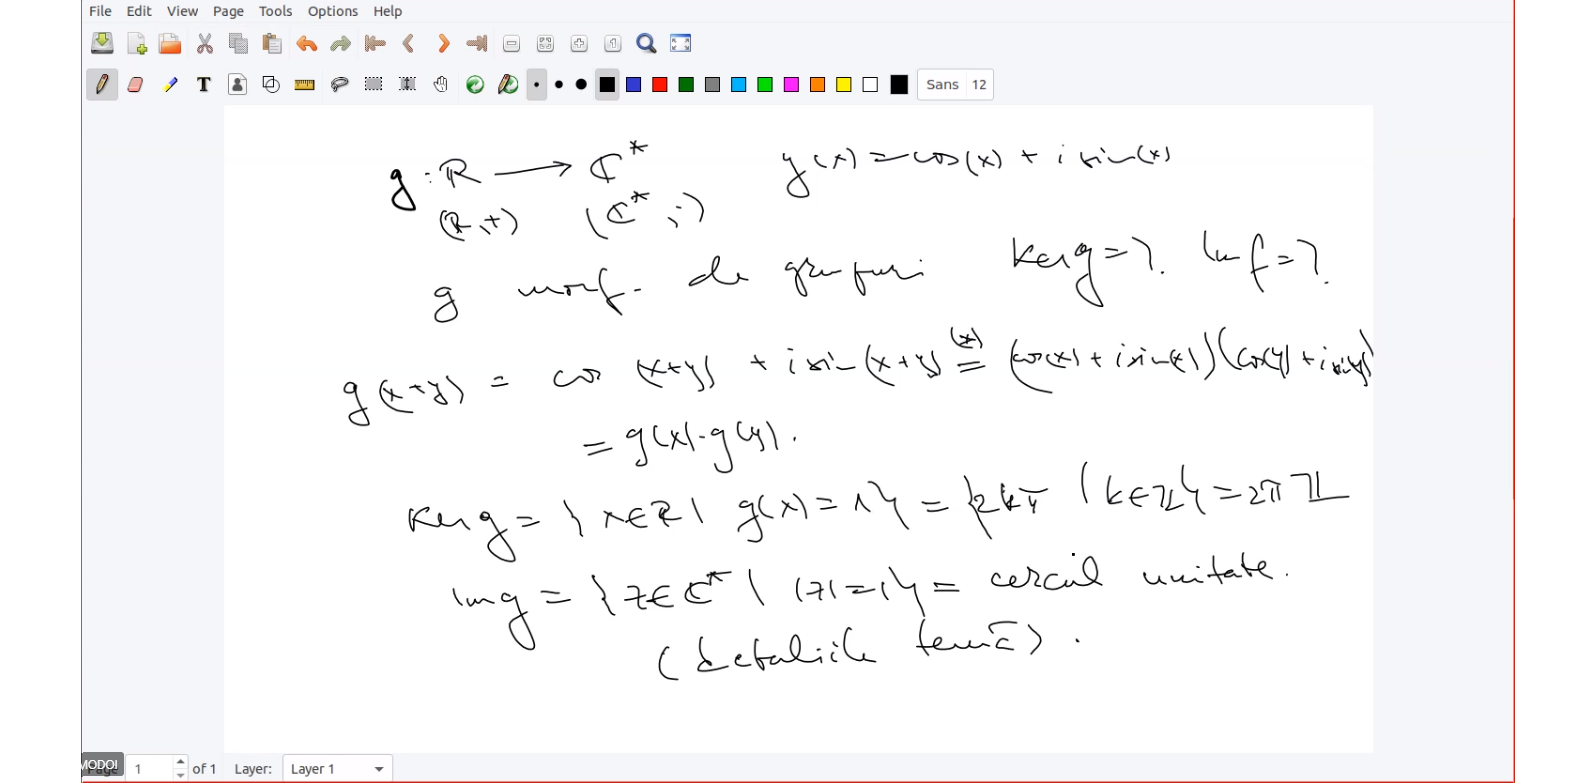 File Edit View Page Tools Options Help
Sans 12
g : ℝ ⟶ ℂ* g(x) = cos(x) + i sin(x)
(ℝ,+) (ℂ*,·)
g morf. de grupuri Ker g = ?. Im f = ?.
g(x+y) = cos (x+y) + i sin(x+y) (*)= (cos(x) + i sin(x))(cos(y) + i sin(y))
= g(x)·g(y).
Ker g = {x∈ℝ | g(x) = 1} = {2kπ | k∈ℤ} = 2πℤ
Im g = {z∈ℂ* | |z| = 1} = cercul unitate.
(detaliile temă).
MODO!
Page 1 of 1 Layer: Layer 1